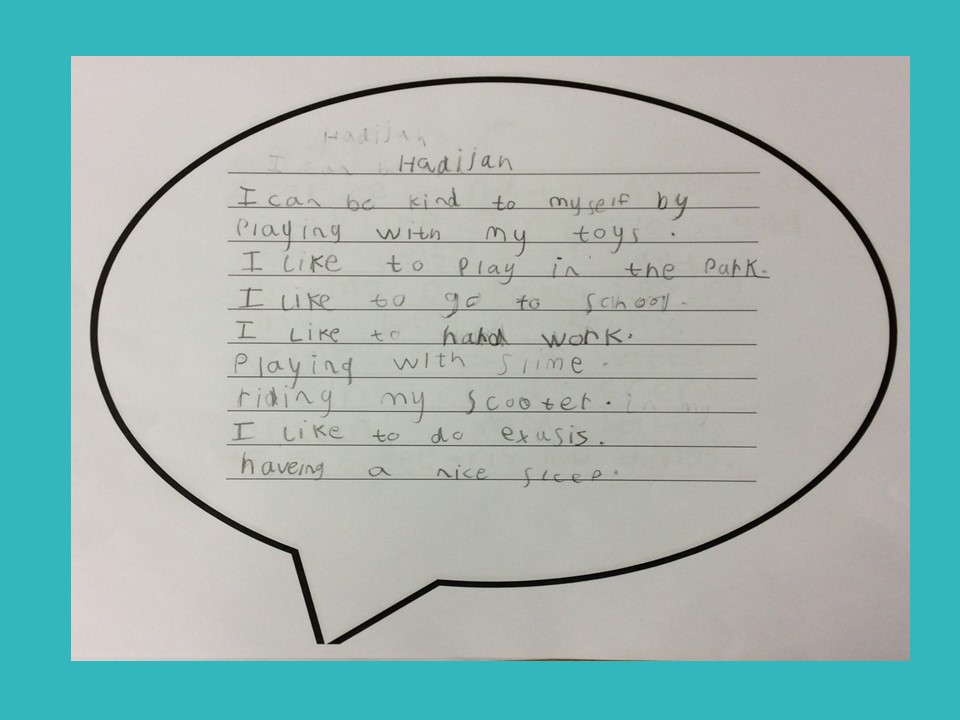 Hadijah
Hadijah
I can be kind to myself by
Playing with my toys.
I like to play in the Park.
I like to go to school.
I like to hahd work.
Playing with slime.
riding my scooter.
I like to do exusis.
haveing a nice sleep.